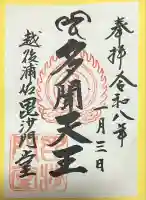 奉拝 令和八年
一月三日
多聞天王
越後浦佐毘沙門堂